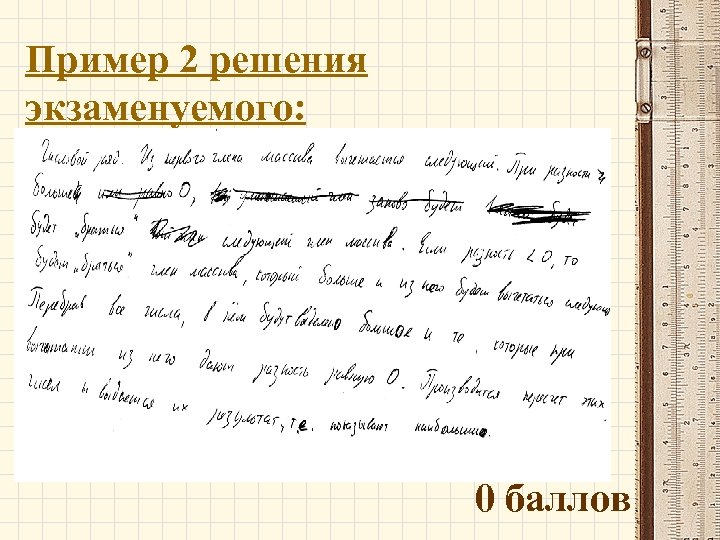 Пример 2 решения
экзаменуемого:
Числовой ряд. Из первого члена массива вычетается следующий. При разности
большей или равно 0, заново будет
будет „браться" следующий член массива. Если разность < 0, то
будем „браться" член массива, который больше и из него будет вычетаться следующий
Перебрав все числа, в нём будут выделено большое и то, которые при
вычитании из него дают разность равную 0. Производится пересчет этих
чисел и выдается их результат, т.е. показывают наибольшие.
0 баллов